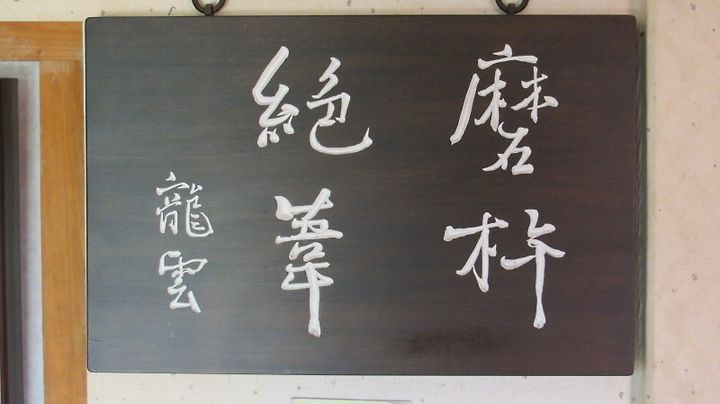 磨杵
絶葦
龍雲